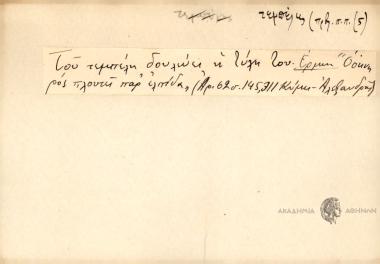 τεμπέλης (πρβ. π.π. (5)
Τοῦ τεμπέλη δουλεύει ἡ τύχη του. Ερμην. "Ὀκνη
ρός πλουτεῖ παρ' ἐλπίδα, (Ἀρ. 62 σ. 145, 211 Κύμη - Ἀλεξανδρῆ)
ΑΚΑΔΗΜΙΑ ΑΘΗΝΩΝ